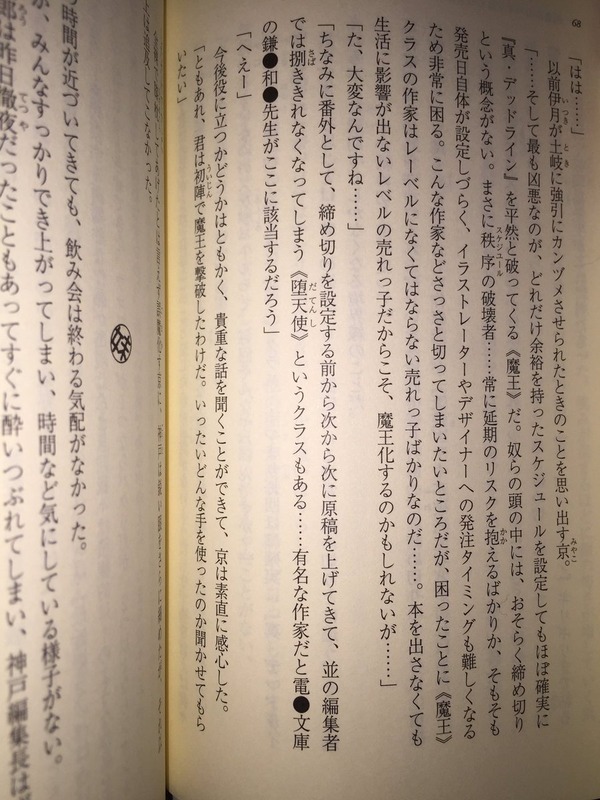 68
「はは……」
以前伊月が土岐に強引にカンヅメさせられたときのことを思い出す京。
「……そして最も凶悪なのが、どれだけ余裕を持ったスケジュールを設定してもほぼ確実に
『真・デッドライン』を平然と破ってくる《魔王》だ。奴らの頭の中には、おそらく締め切り
という概念がない。まさに秩序の破壊者……常に延期のリスクを抱えるばかりか、そもそも
発売日自体が設定しづらく、イラストレーターやデザイナーへの発注タイミングも難しくなる
ため非常に困る。こんな作家などさっさと切ってしまいたいところだが、困ったことに《魔王》
クラスの作家はレーベルになくてはならない売れっ子ばかりなのだ……。本を出さなくても
生活に影響が出ないレベルの売れっ子だからこそ、魔王化するのかもしれないが……」
「た、大変なんですね……」
「ちなみに番外として、締め切りを設定する前から次から次に原稿を上げてきて、並の編集者
では捌ききれなくなってしまう《堕天使》というクラスもある……有名な作家だと電●文庫
の鎌●和●先生がここに該当するだろう」
「へえー」
今後役に立つかどうかはともかく、貴重な話を聞くことができて、京は素直に感心した。
「ともあれ、君は初陣で魔王を撃破したわけだ。いったいどんな手を使ったのか聞かせてもら
いたい」
時間が近づいてきても、飲み会は終わる気配がなかった。
みんなすっかりでき上がってしまい、時間など気にしている様子がない。
は昨日徹夜だったこともあってすぐに酔いつぶれてしまい、神戸編集長は